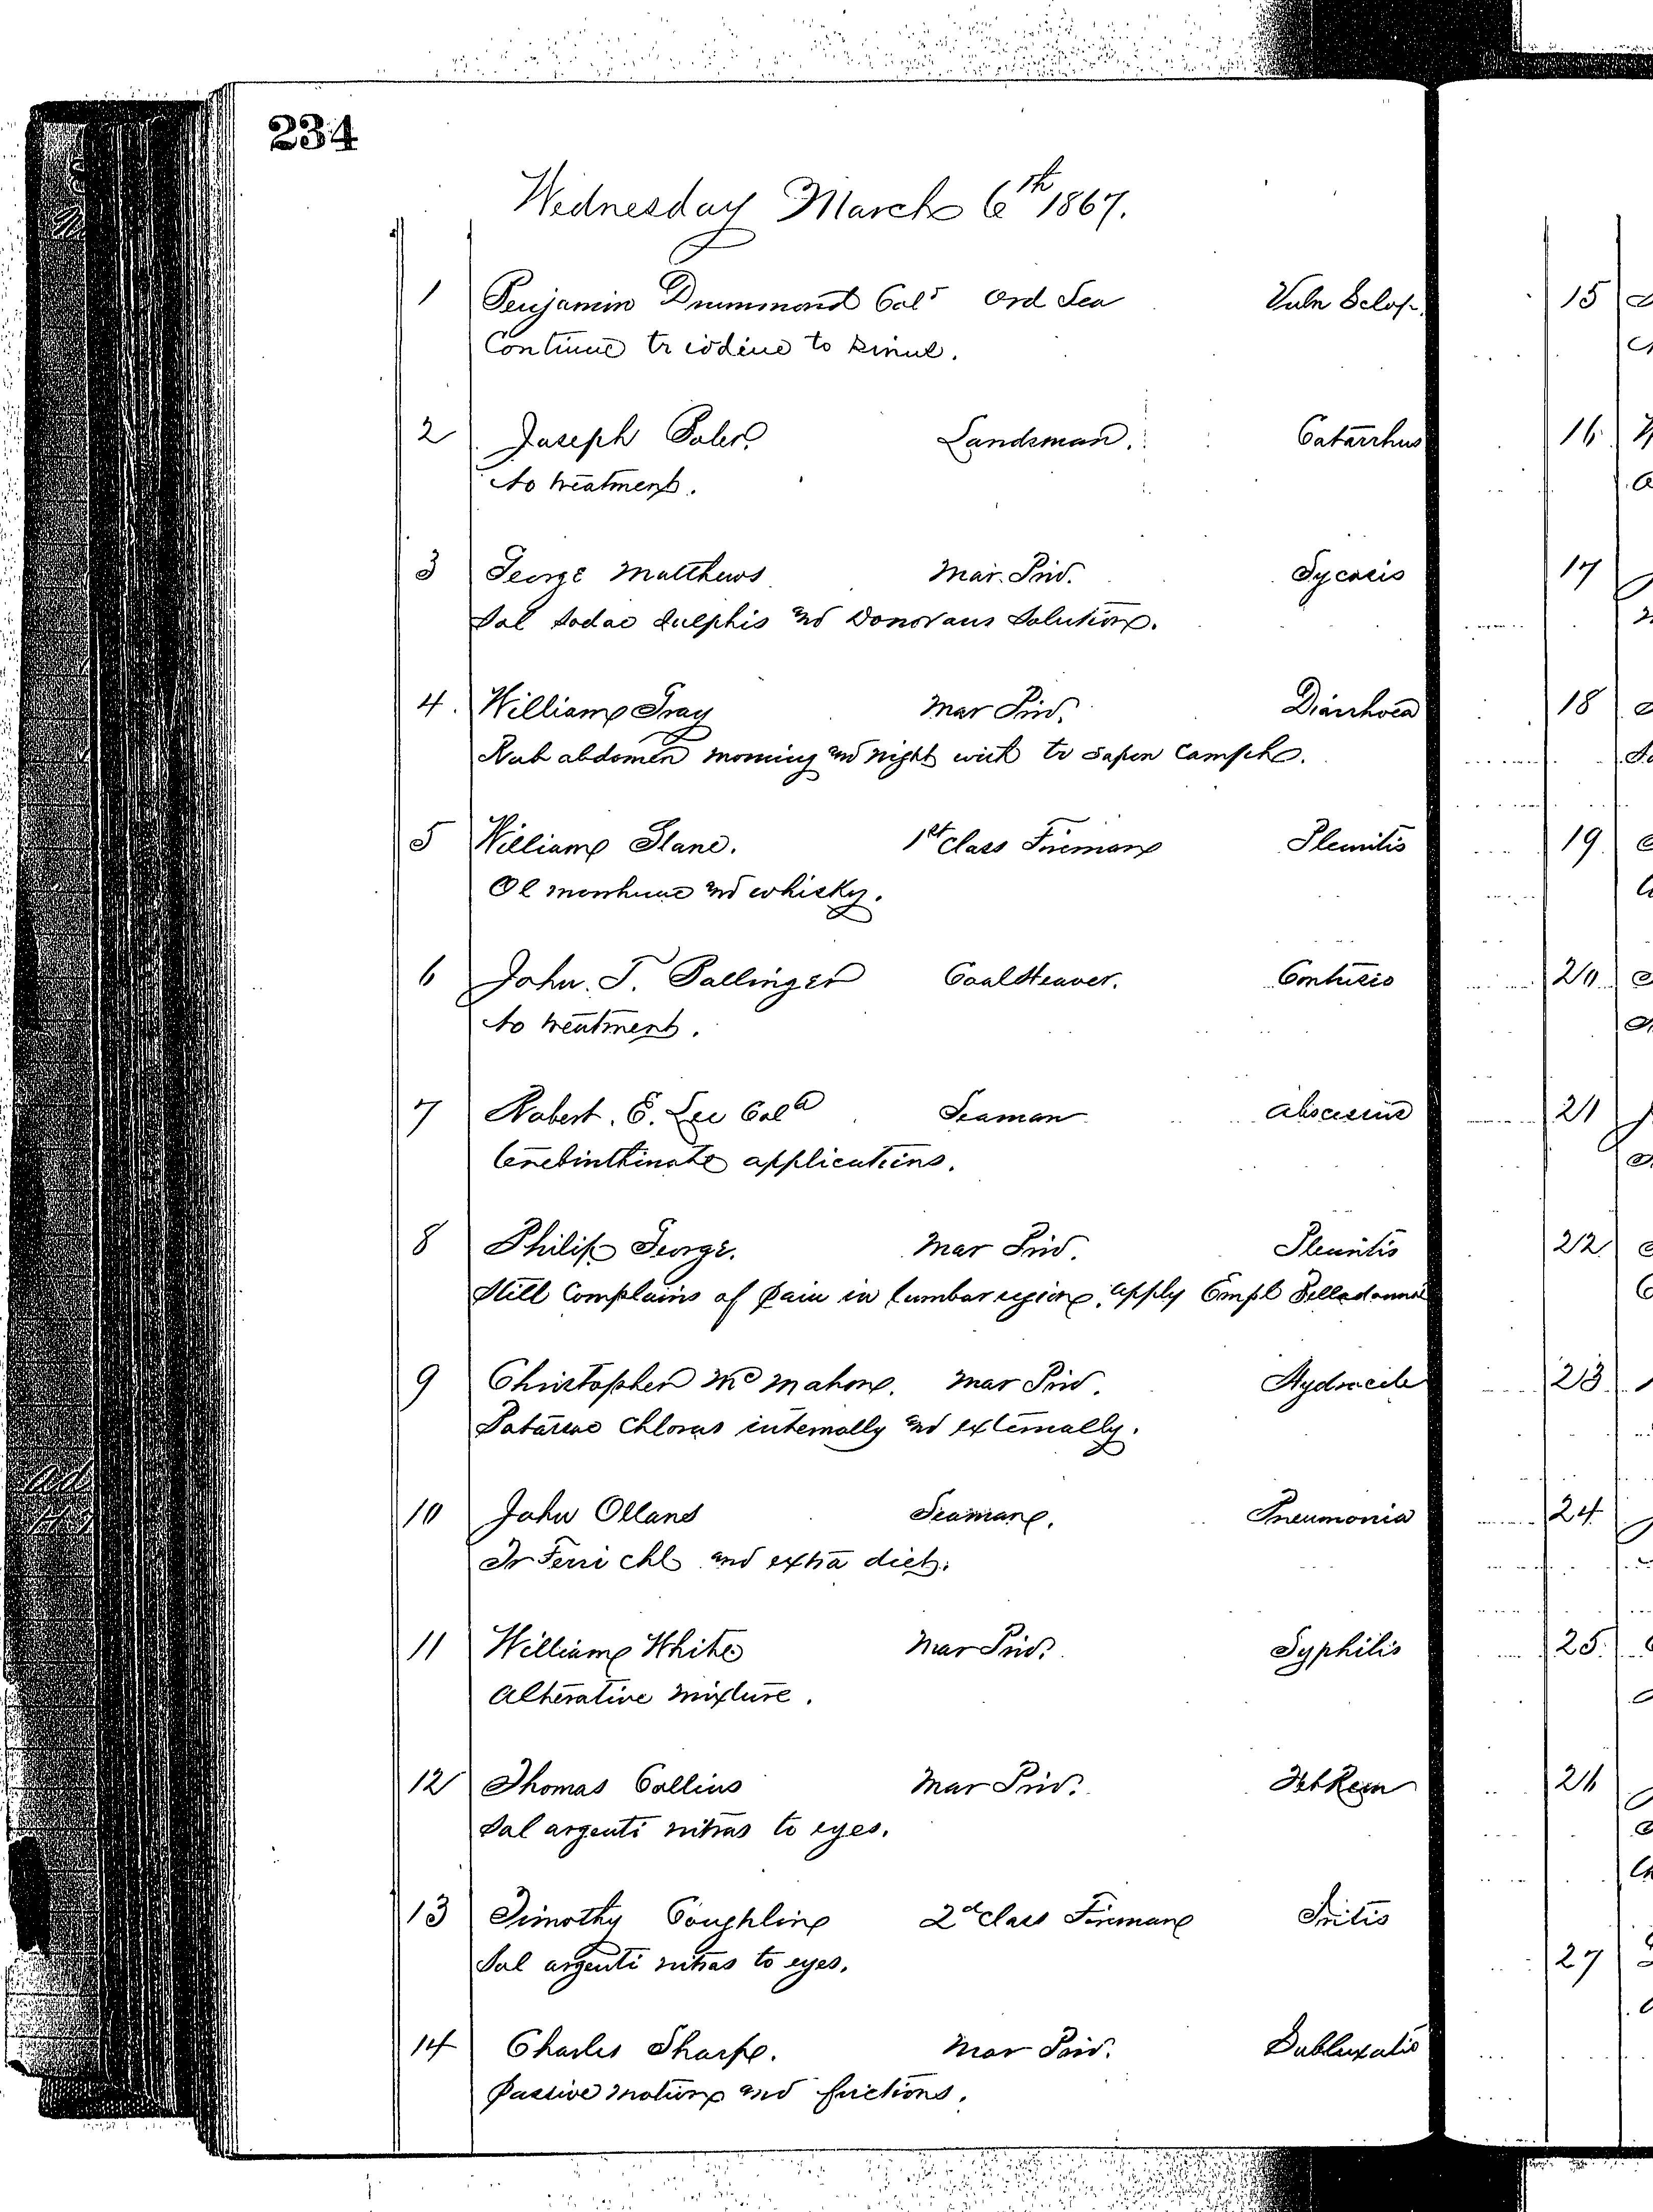 234
Wednesday March 6th 1867.
1 Benjamin Drummond Cold Ord Sea Vuln Sclop.
Continue tr iodine to sinus.
2 Joseph Landsman. Catarrhus
No treatment.
3 George Matthews Mar. Priv. Sycosis
Sol Sodae Sulphis and Donovans Solution.
4. William Gray Mar Priv. Diarrhoea
Rub abdomen morning and night with tr Sapon Camph.
5 William Slane. 1st Class Fireman Pleuritis
Ol morrhuae and whisky.
6 John. T. Ballinger Coal Heaver. Contusio
No treatment.
7 Robert. E. Lee Cold Seaman Abscessus
Terebinthinate applications.
8 Philip George. Mar Priv. Pleuritis
Still Complains of pain in lumbar region, apply Empl Belladonnae
9 Christopher McMahon. Mar Priv. Hydrocele
Potassae Chloras internally and externally.
10 John Olland Seaman. Pneumonia
Tr Ferri Chl and extra diet.
11 William White Mar Priv. Syphilis
Alterative mixture.
12 Thomas Collins Mar Priv. Feb Rem
Sol argenti nitras to eyes.
13 Timothy Coughlin 2d Class Fireman Iritis
Sol argenti nitras to eyes.
14 Charles Sharpe. Mar Priv. Subluxatio
Passive motion and frictions.
15
16
17
18
19
20
21
22
23
24
25
26
27